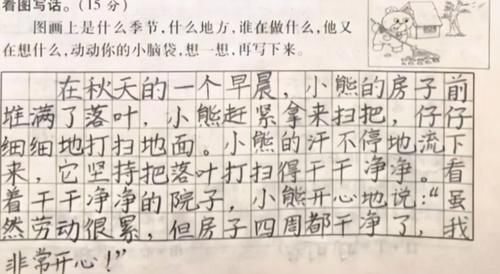 看图写话。(15分)
图画上是什么季节,什么地方,谁在做什么,他又
在想什么,动动你的小脑袋,想一想,再写下来。
在秋天的一个早晨,小熊的房子前
堆满了落叶,小熊赶紧拿来扫把,仔仔
细细地打扫地面。小熊的汗不停地流下
来,它坚持把落叶打扫得干干净净。看
着干干净净的院子,小熊开心地说:“虽
然劳动很累,但房子四周都干净了,我
非常开心!”